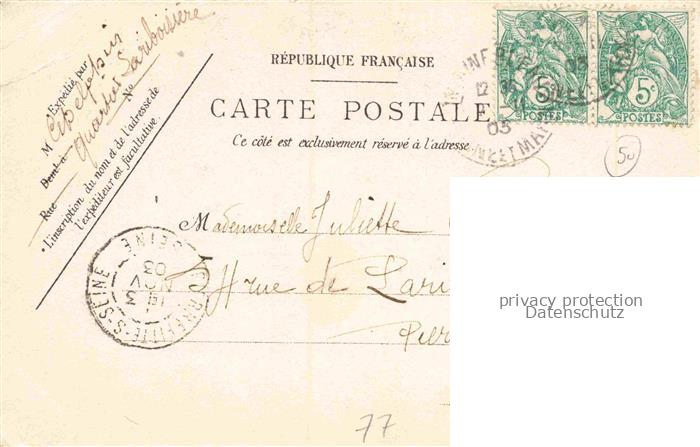 RÉPUBLIQUE FRANÇAISE
CARTE POSTALE
Ce côté est exclusivement réservé à l'adresse.
Expédié par
M
Quartier Lariboisière
Demt à
Rue No
L'inscription du nom et de l'adresse de
l'expéditeur est facultative.
5c 5c
POSTES POSTES
03
50
Mademoiselle Juliette
rue de Lari
Pier
PIERREFITTE-S-SEINE
13
NOV
03
SEINE
77
privacy protection
Datenschutz